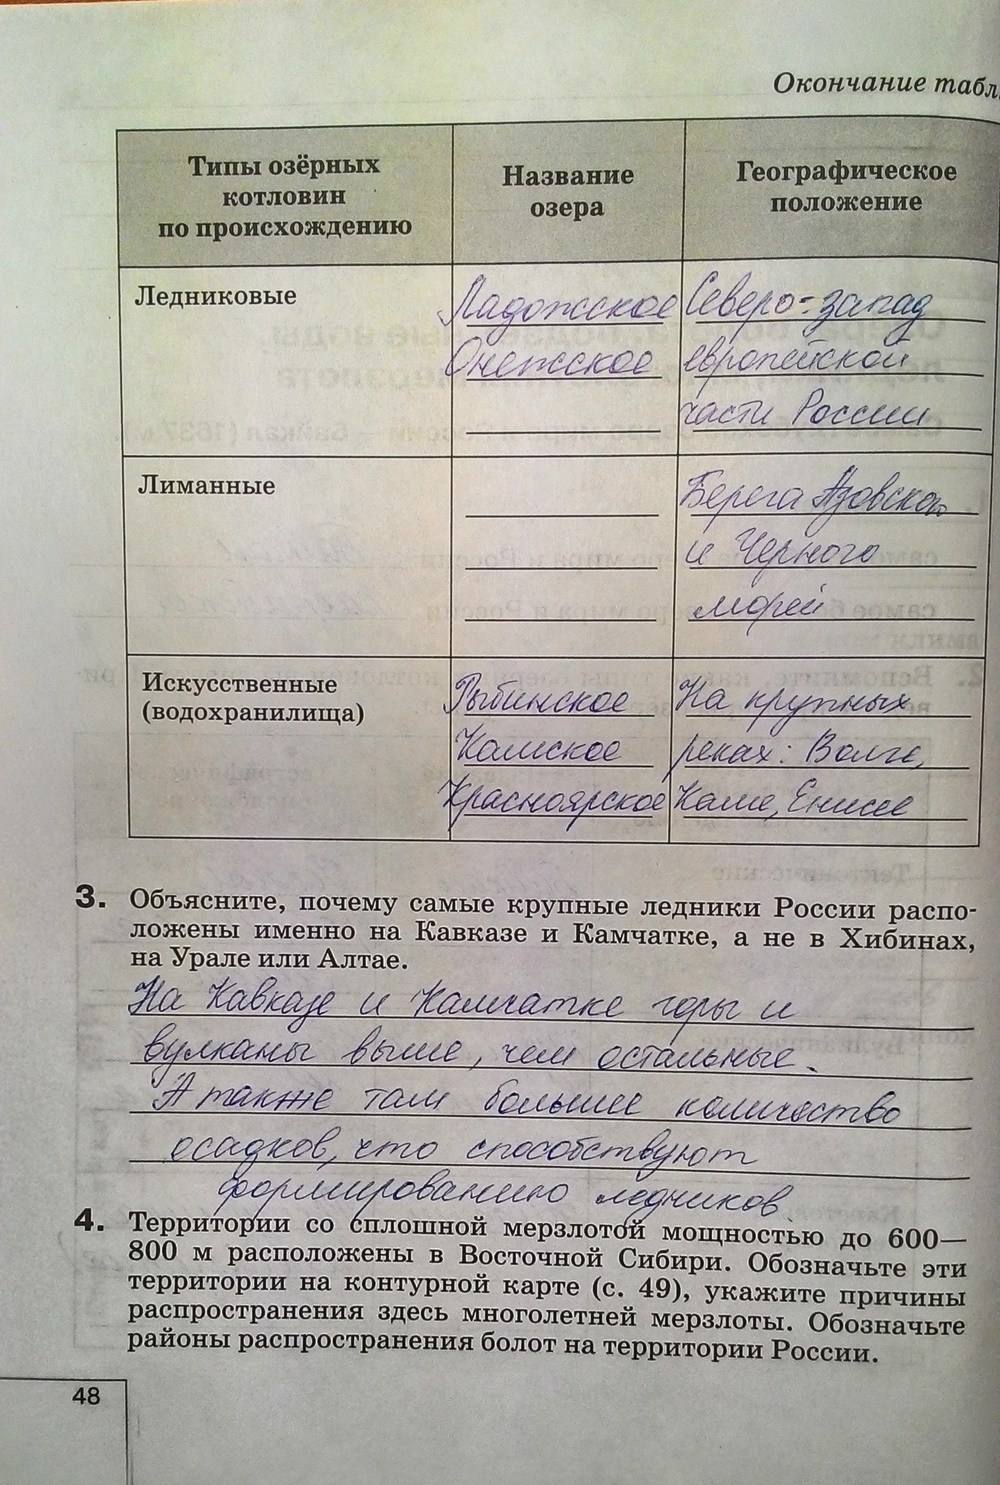 Окончание табл.
Типы озёрных
котловин
по происхождению
Название
озера
Географическое
положение
Ледниковые
Ладожское
Онежское
Северо-запад
европейской
части России
Лиманные
Берега Азовского
и Черного
морей
Искусственные
(водохранилища)
Рыбинское
Камское
Красноярское
На крупных
реках: Волге,
Каме, Енисее
3. Объясните, почему самые крупные ледники России распо-
ложены именно на Кавказе и Камчатке, а не в Хибинах,
на Урале или Алтае.
На Кавказе и Камчатке горы и
вулканы выше, чем остальные.
А также там большее количество
осадков, что способствуют
формированию ледников.
4. Территории со сплошной мерзлотой мощностью до 600—
800 м расположены в Восточной Сибири. Обозначьте эти
территории на контурной карте (с. 49), укажите причины
распространения здесь многолетней мерзлоты. Обозначьте
районы распространения болот на территории России.
48